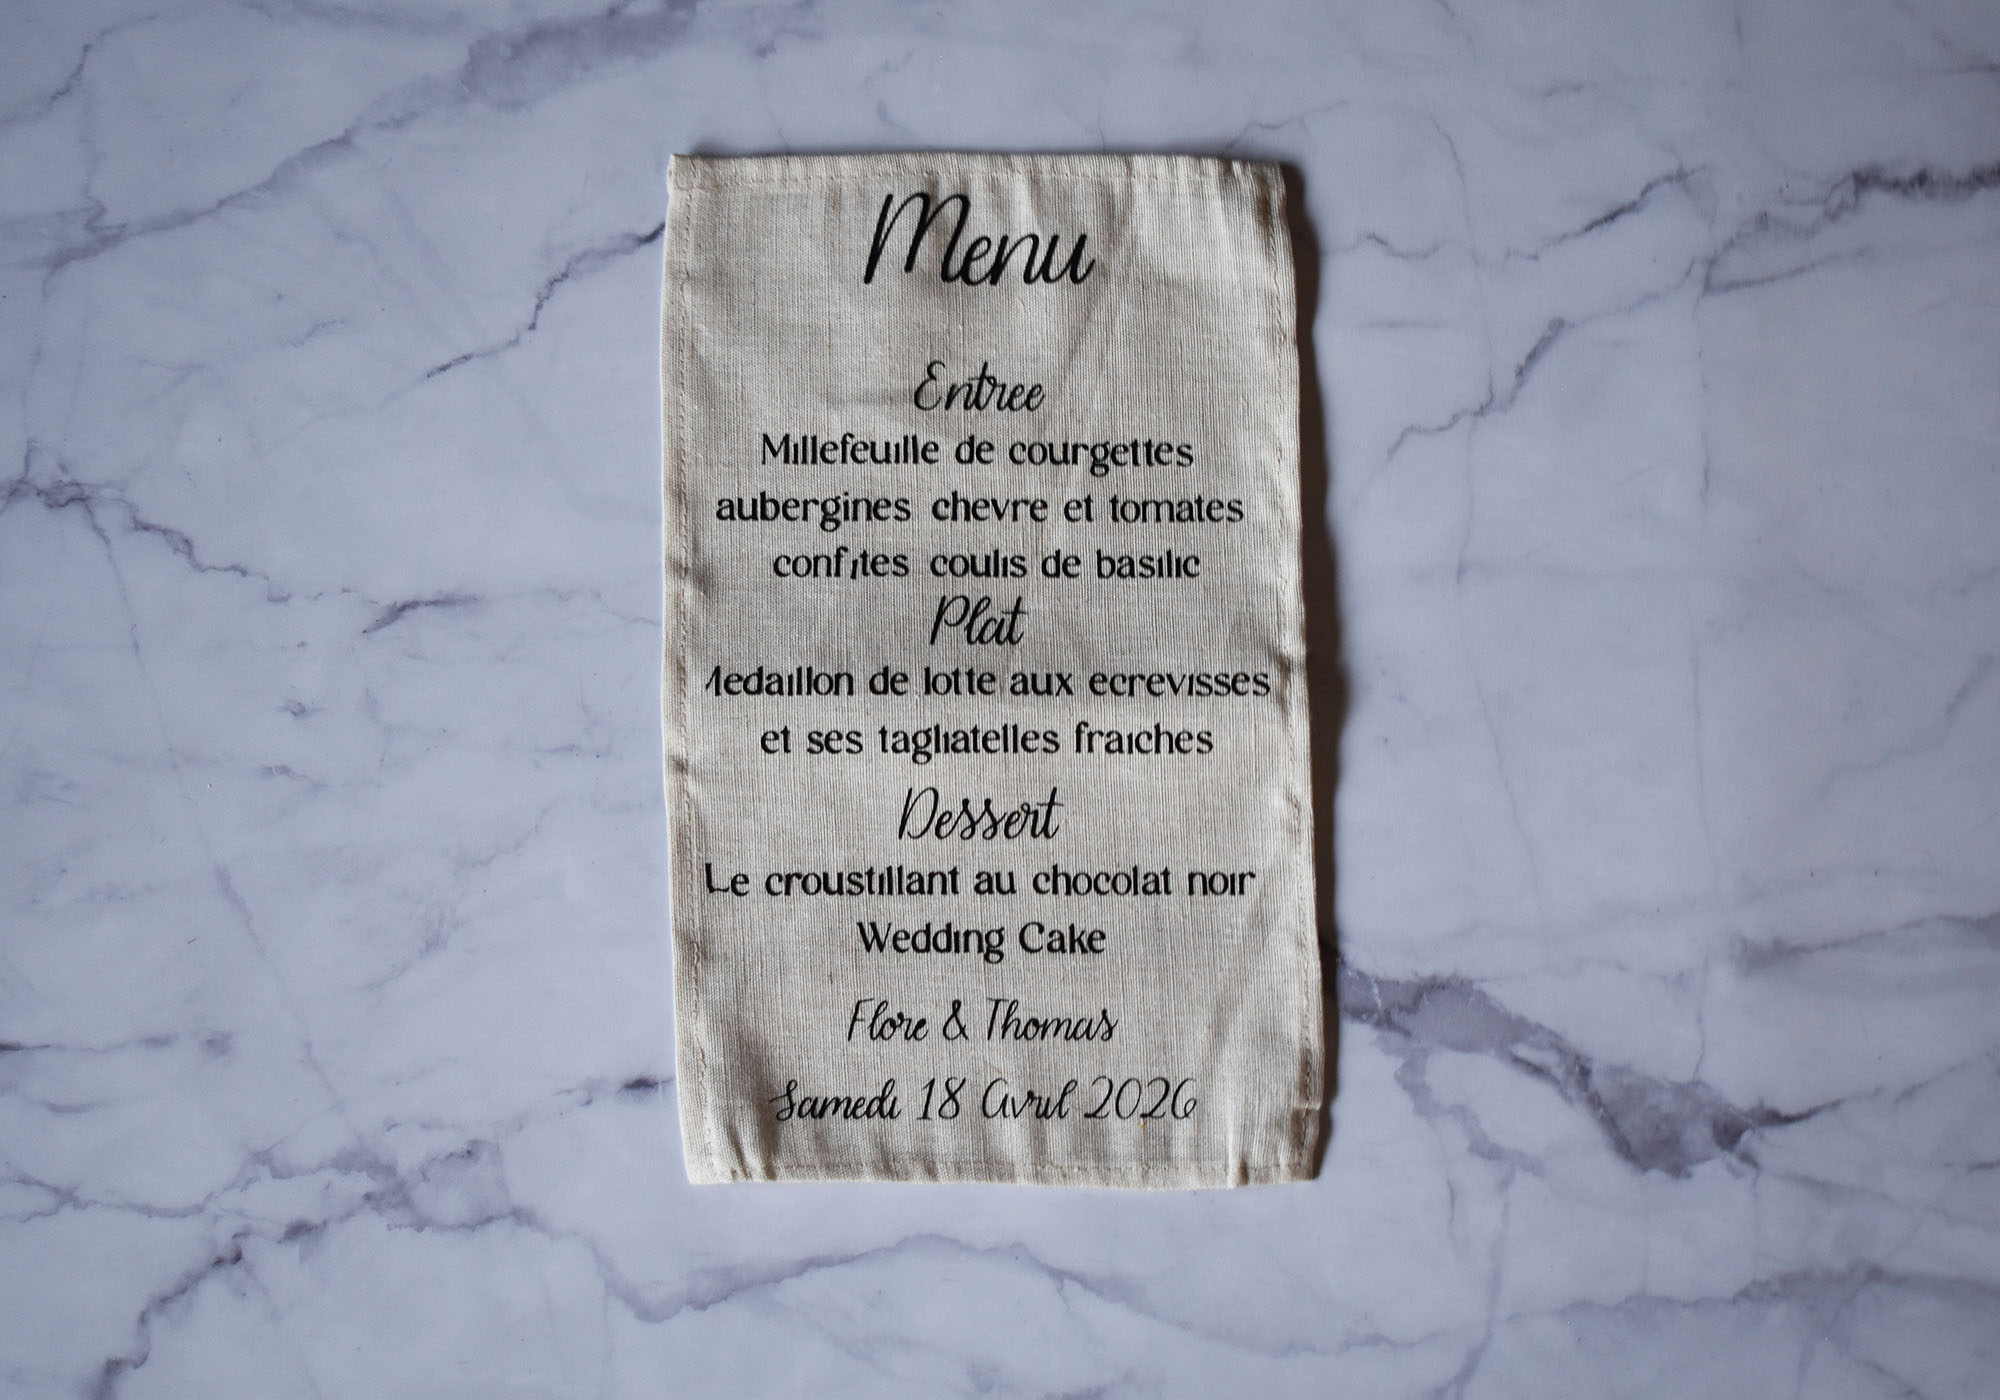 Menu
Entree
Millefeuille de courgettes
aubergines chevre et tomates
confites coulis de basilic
Plat
Medaillon de lotte aux ecrevisses
et ses tagliatelles fraiches
Dessert
Le croustillant au chocolat noir
Wedding Cake
Flore & Thomas
Samedi 18 Avril 2026